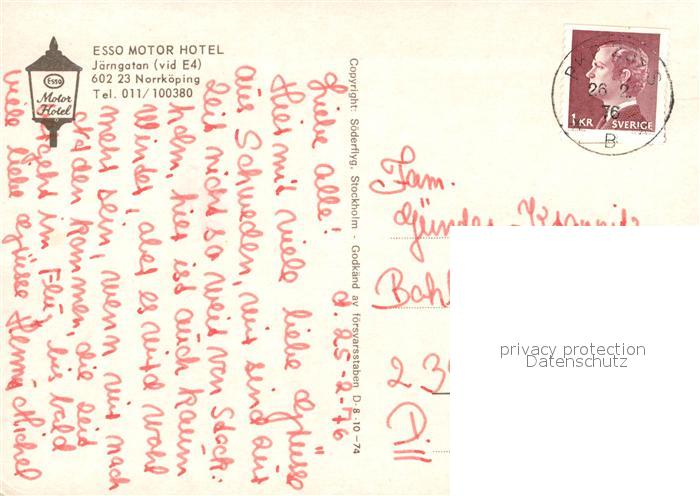 ESSO MOTOR HOTEL
Järngatan (vid E4)
602 23 Norrköping
Tel. 011/100380
Esso
Motor
Hotel
Copyright: Söderflyg, Stockholm - Godkänd av försvarsstaben D-8-10-74
26 2
76
B
1 KR SVERIGE
d. 25-2-76
Liebe alle!
Hier mit viele liebe Grüsse
aus Schweden, wir sind zur
Zeit nicht so weit von Stock-
holm, hier ist auch kaum
Winter, aber es wird wohl
mehr sein, wenn wir nach
Norden kommen, die Zeit
geht im Flug, bis bald
viele liebe Grüsse Henni Michel
Fam.
Günder
Bahl
23
Dill
privacy protection
Datenschutz